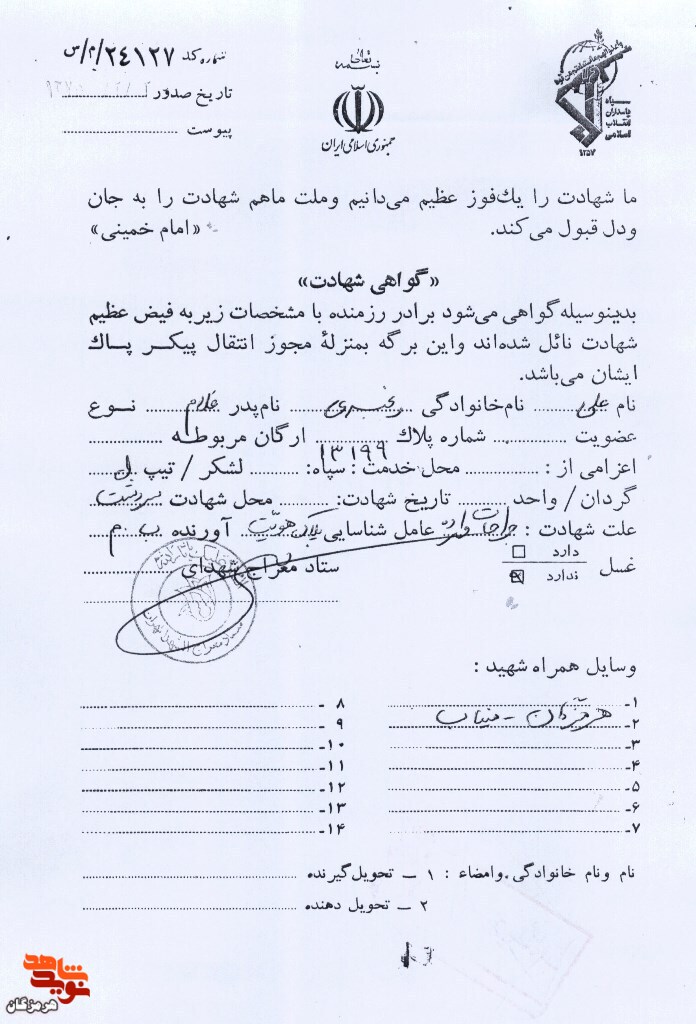 بسمه تعالی
جمهوری اسلامی ایران
سپاه
پاسداران
انقلاب
اسلامی
۱۳۵۷
شماره کد ۲۴۱۲۷/م/س
تاریخ صدور
پیوست
ما شهادت را یك‌فوز عظیم می‌دانیم وملت ماهم شهادت را به جان
ودل قبول می‌کند. «امام خمینی»
«گواهی شهادت»
بدینوسیله گواهی می‌شود برادر رزمنده با مشخصات زیر به فیض عظیم
شهادت نائل شده‌اند واین برگه بمنزلهٔ مجوز انتقال پیکر پاك
ایشان می‌باشد.
نام علی نام‌خانوادگی نام‌پدر غلام نوع
عضویت شماره پلاك ۱۳۱۹۹ ارگان مربوطه
اعزامی از : محل خدمت : سپاه: لشکر / تیپ ل
گردان / واحد تاریخ شهادت: محل شهادت
علت شهادت : جراحات وارده عامل شناسایی پلاک هویت آورنده ب م
غسل دارد
ندارد
ستاد معراج شهدای
وسایل همراه شهید :
۱-
۲- هرمزگان - میناب
۳-
۴-
۵-
۶-
۷-
۸ -
۹ -
۱۰-
۱۱-
۱۲-
۱۳-
۱۴-
نام ونام خانوادگی وامضاء : ۱ – تحویل‌گیرنده
۲ – تحویل دهنده
نوید شاهد
هرمزگان